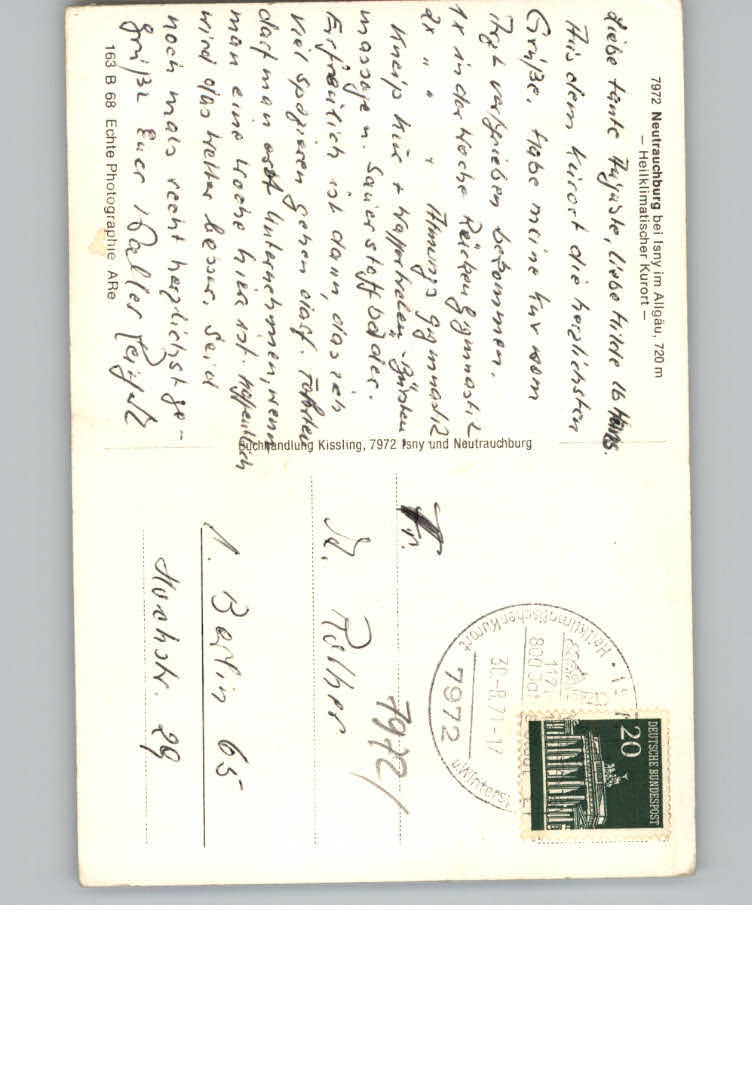 7972 Neutrauchburg bei Isny im Allgäu, 720 m
– Heilklimatischer Kurort –
Liebe Tante Auguste, liebe Hilde
Aus dem Kurort die herzlichsten
Grüße. Habe meine Kur vom
Arzt verschrieben bekommen.
1x in der Woche Rückengymnastik
2x " " " Atmungsgymnastik
Kneip Kur + Wassertreten, Bürsten
massage u. Sauerstoffbäder.
Erfreulich ist dann, das ich
viel spazieren gehen darf. Fahrten
darf man erst Unternehmen, wenn
man eine Woche hier ist. Hoffentlich
wird das Wetter besser. Seid
noch mals recht herzlichst ge-
grüßt Euer Walter
163 B 68 Echte Photographie ARe
Buchhandlung Kissling, 7972 Isny und Neutrauchburg
DEUTSCHE BUNDESPOST
20
Heilklimatischer Kurort
1171
800
30.-8.71-17
7972
Fr.
7972/
1. Berlin 65
Hochstr. 29